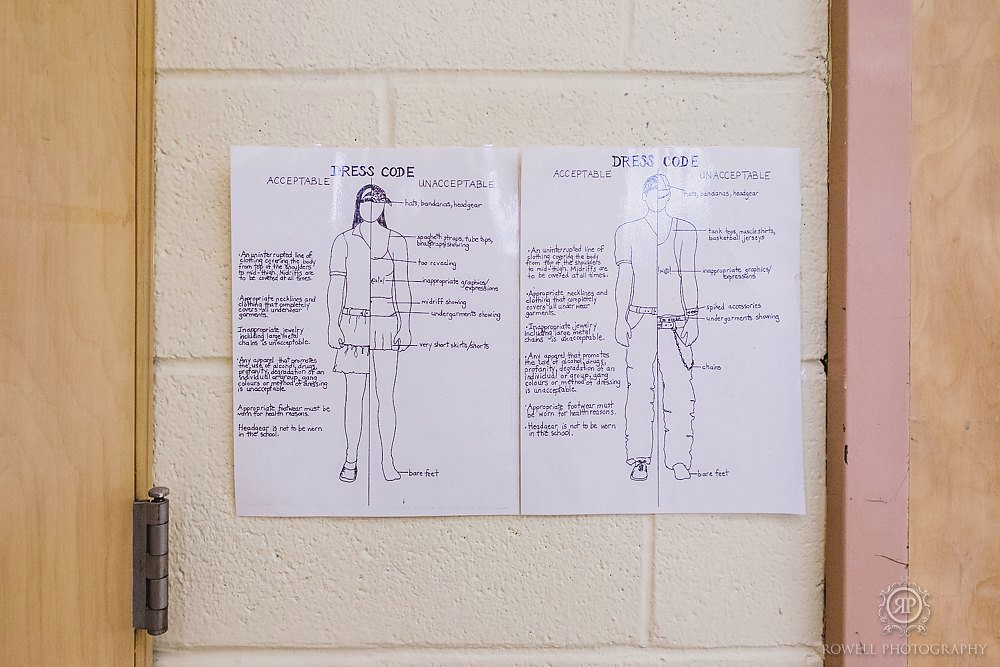 DRESS CODE
ACCEPTABLE
UNACCEPTABLE
hats, bandanas, headgear
spaghetti straps, tube tops,
bra straps showing
too revealing
inappropriate graphics/
expressions
midriff showing
undergarments showing
very short skirts/shorts
bare feet
• An uninterrupted line of
clothing covering the body
from top of the shoulders
to mid-thigh. Midriffs are
to be covered at all times.
• Appropriate necklines and
clothing that completely
covers all underwear
garments.
Inappropriate jewelry
including large metal
chains is unacceptable.
• Any apparel that promotes
the use of alcohol, drugs,
profanity, degradation of an
individual or group, gang
colours or method of dressing
is unacceptable.
Appropriate footwear must be
worn for health reasons.
Headgear is not to be worn
in the school.
DRESS CODE
ACCEPTABLE
UNACCEPTABLE
hats, bandanas, headgear
tank tops, muscle shirts,
basketball jerseys
inappropriate graphics/
expressions
spiked accessories
undergarments showing
chains
bare feet
• An uninterrupted line of
clothing covering the body
from top of the shoulders
to mid-thigh. Midriffs are
to be covered at all times.
• Appropriate necklines and
clothing that completely
covers all underwear
garments.
• Inappropriate jewelry
including large metal
chains is unacceptable.
• Any apparel that promotes
the use of alcohol, drugs,
profanity, degradation of an
individual or group, gang
colours or method of dressing
is unacceptable.
• Appropriate footwear must
be worn for health reasons.
• Headgear is not to be worn
in the school.
RP
ROWELL PHOTOGRAPHY